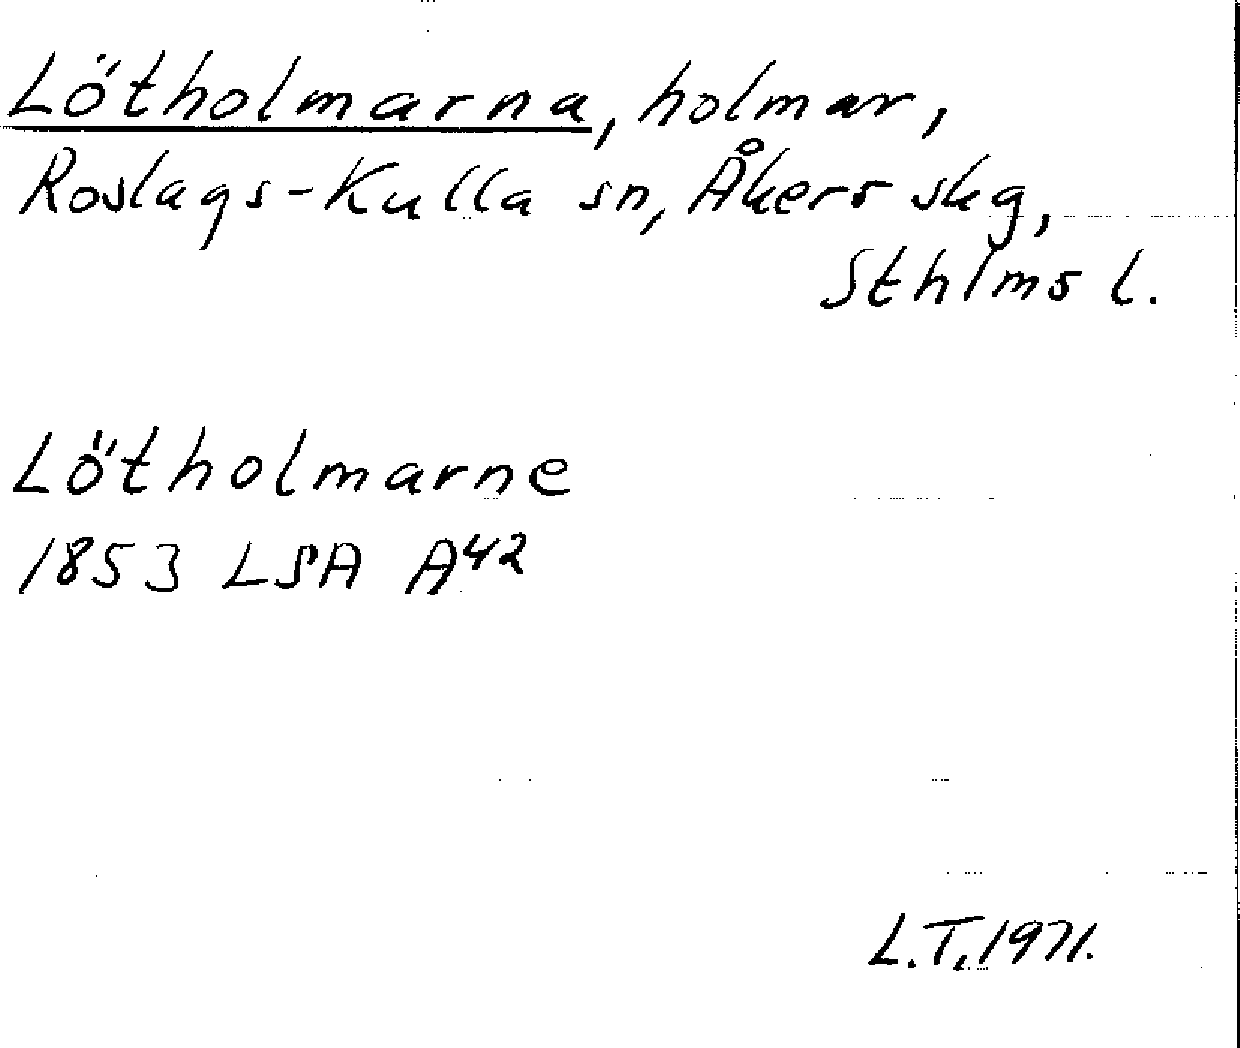 Lötholmarna, holmar,
Roslags-Kulla sn, Åkers skg,
Sthlms l.
Lötholmarne
1853 LSA A42
L.T. 1971.